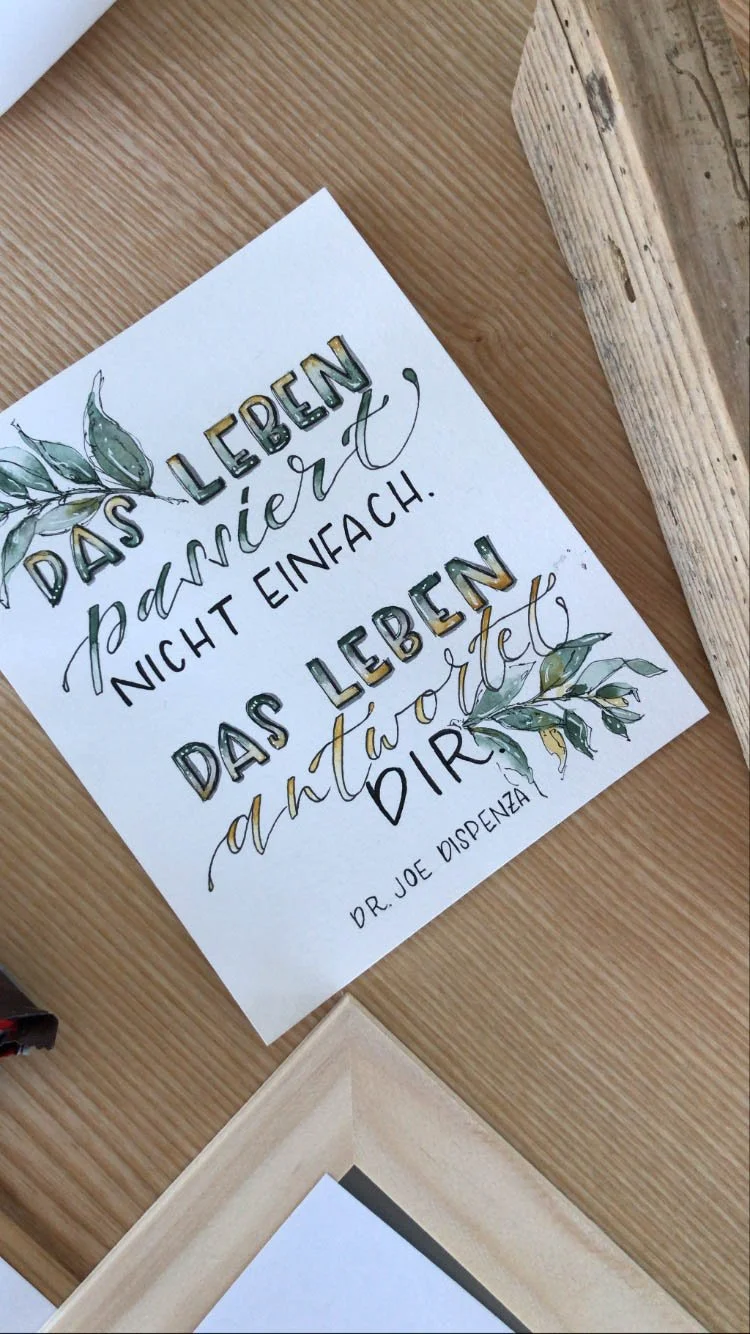 DAS LEBEN
passiert
NICHT EINFACH.
DAS LEBEN
antwortet
DIR.
DR. JOE DISPENZA